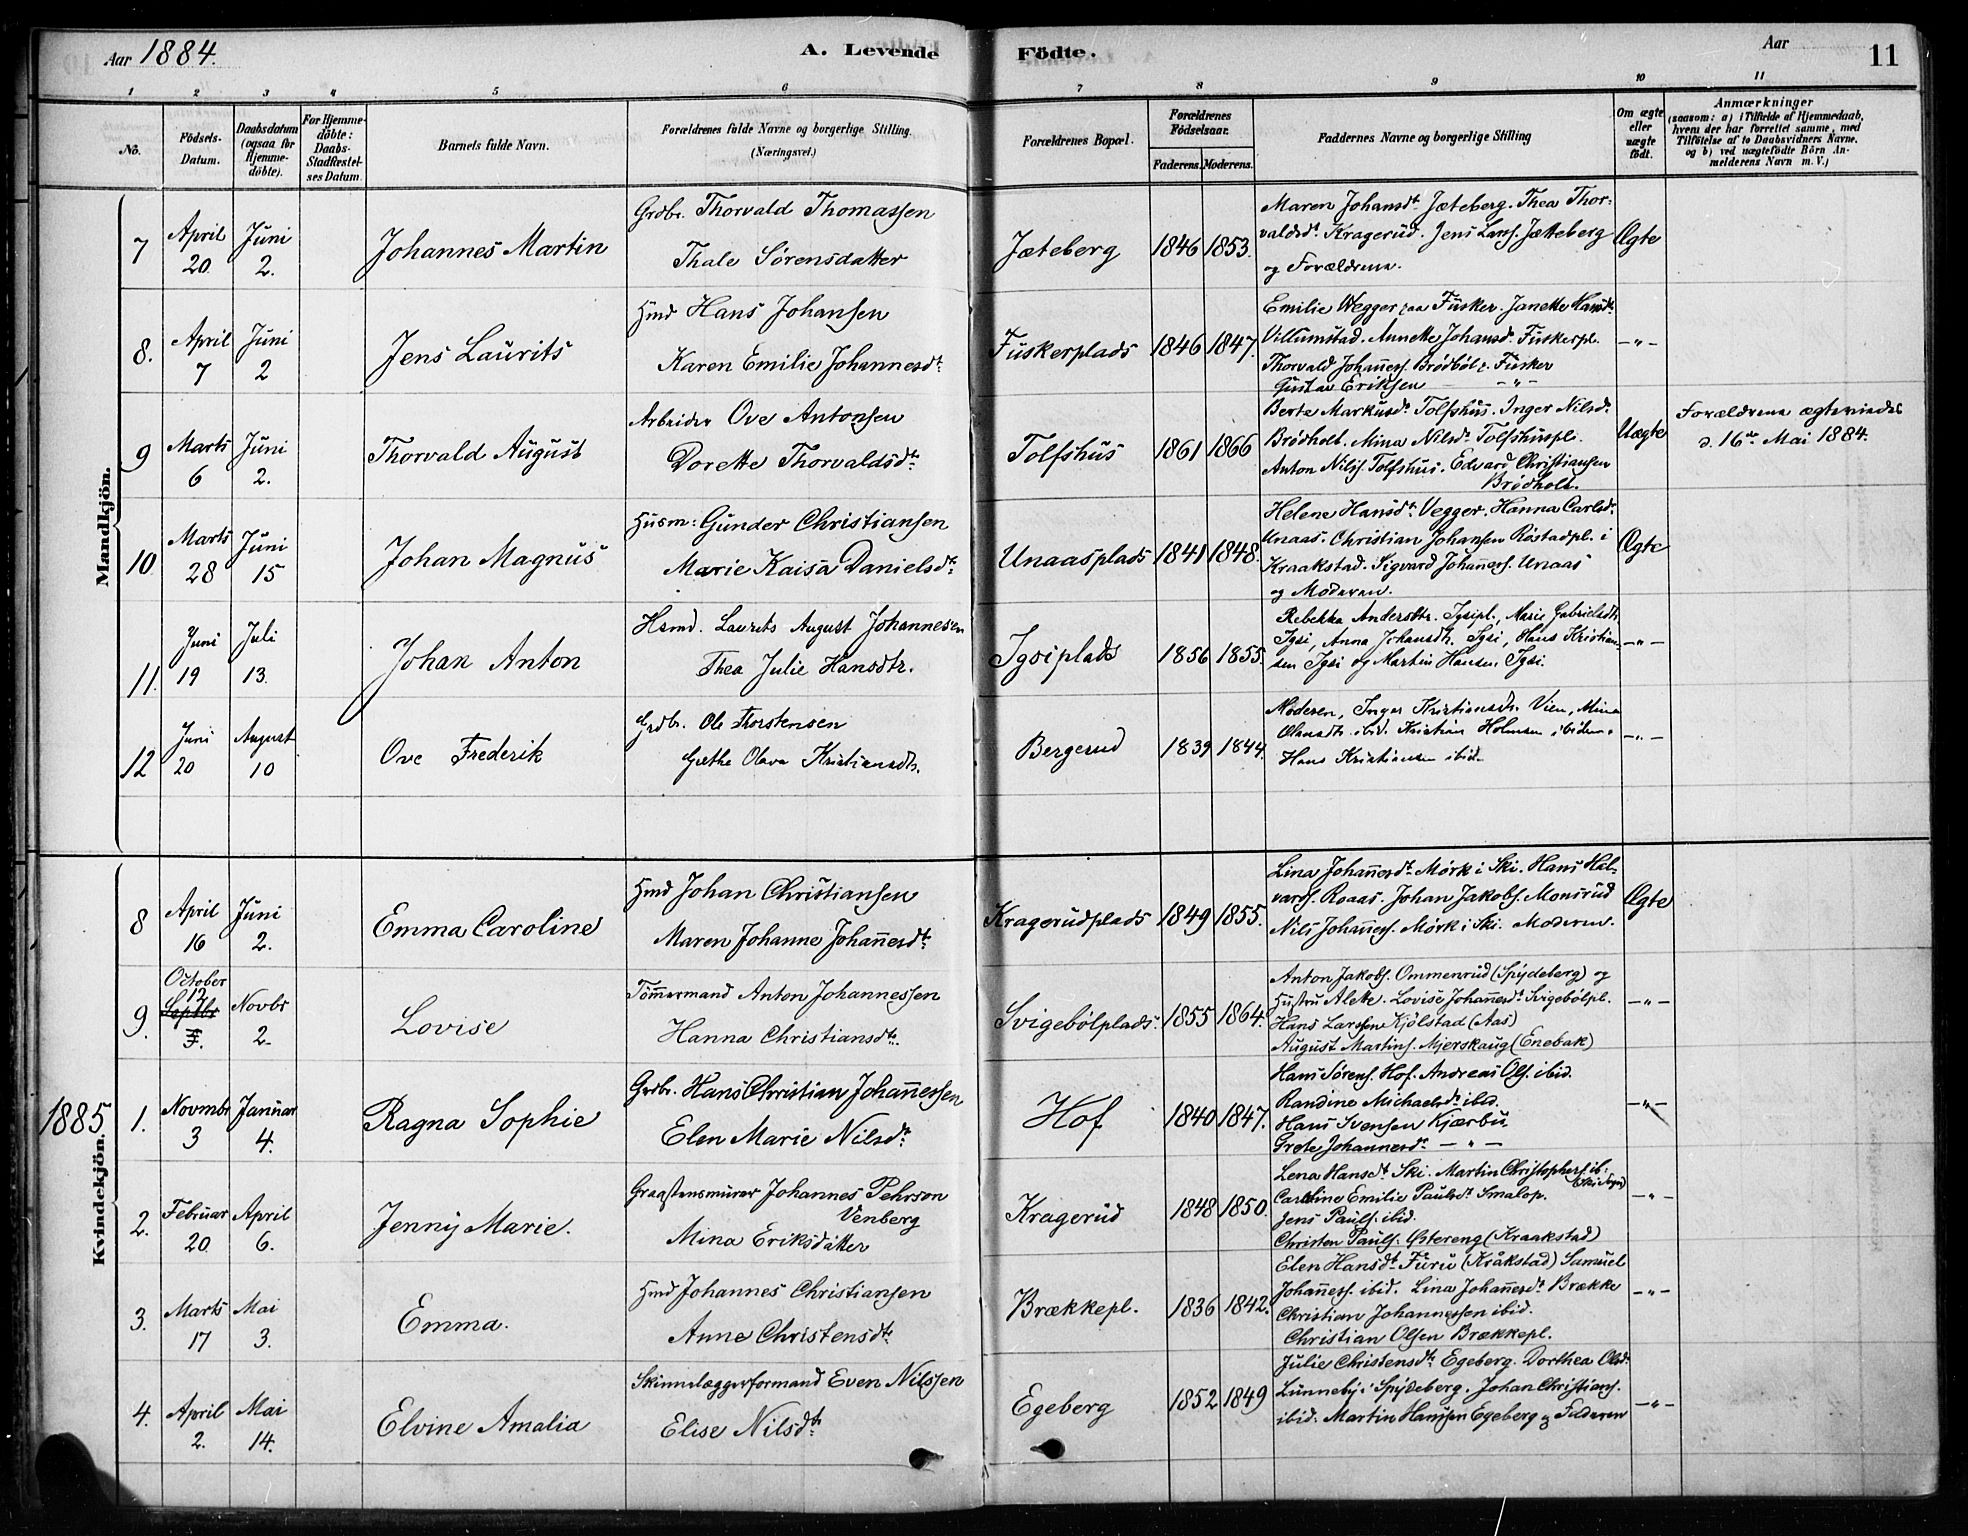 Aar 1884.
A. Levende Födte.
Aar
11
1 2 3 4 5 6 7 8 9 10 11
No.
Födsels-Datum.
Daabsdatum (ogsaa for Hjemmedöbte).
For Hjemmedöbte: Daabs-Stadfæstelses Datum.
Barnets fulde Navn.
Forældrenes fulde Navne og borgerlige Stilling. (Næringsvei.)
Forældrenes Bopæl.
Forældrenes Födselsaar.
Faderens. Moderens.
Faddernes Navne og borgerlige Stilling
Om ægte eller uægte födt.
Anmærkninger
(saasom: a) i Tilfælde af Hjemmedaab, hvem der har forrettet samme, med Tilföielse af to Daabsvidners Navne, og b) ved uægtefödte Börn Anmelderens Navn m. V.)
Mandkjön.
7 April 20. Juni 2. Johannes Martin
Grdbr. Thorvald Thomassen
Thale Sörensdatter
Jæteberg 1846 1853.
Maren Johansdt. Jæteberg. Thea Thor-
valdsdt. Kragerud. Jens Lars. Jætteberg
og Forældrene.
Ægte
8. April 7 Juni 2 Jens Laurits
Hmd Hans Johansen
Karen Emilie Johannesdt.
Fuskerplads 1846 1847.
Emilie Wegger paa Fusker. Janette Hansdt.
Villumstad. Annette Johansdt. Fuskerpl.
Thorvald Johaness. Brödböl. Fusker
Gustav Eriksen — " —
— " —
9 Marts 6 Juni 2. Thorvald August
Arbeider Ove Antonsen
Dorette Thorvaldsdt.
Tolfshus 1861 1866
Berte Markusdt. Tolfshus. Inger Nilsdt.
Brödholt. Mina Nilsdt. Tolfshuspl.
Anton Nilss. Tolfshus. Edvard Christiansen
Brödholt.
Uægte
Forældrene ægteviedes
d. 16de Mai 1884.
10. Marts 28 Juni 15 Johan Magnus
Husm: Gunder Christiansen
Marie Kaisa Danielsdt.
Unaasplads 1841 1848.
Helene Hansdt. Vegger. Hanna Carlsdt.
Unaas. Christian Johansen Röstadpl. i
Kraakstad. Sigvard Johaness. Unaas
og Moderen.
Ægte
11. Juni 19 Juli 13. Johan Anton
Hsmd. Laurits August Johannesen
Thea Julie Hansdtr.
Igsiplads 1856 1855.
Rebekka Andersdtr. Igsipl., Marie Gabrielsdtr.
Igsi, Anna Johansdtr. Igsi, Hans Kristian-
sen Igsi og Martin Hansen Igsi.
— " —
12 Juni 20 August 10 Ove Frederik
Grdbr. Ole Thorstensen
Grethe Olava Kristiansdtr.
Bergerud 1839 1844.
Moderen, Inger Kristiansdtr. Vien, Mina
Olausdtr. ibid. Kristian Holmsen ibidem.
Hans Kristiansen ibid.
— " —
Kvindekjön.
8 April 16 Juni 2. Emma Caroline
Hmd Johan Christiansen
Maren Johanne Johanesdt.
Kragerudplads 1849 1855.
Lina Johanesdt. Mörk i Ski. Hans Hal-
vards. Roaas. Johan Jakobs. Monsrud
Nils Johaness. Mörk i Ski. Moderen.
Ægte
9. October 12 Septbr 3. Novbr 2. Lovise
Tömmermand Anton Johannessen
Hanna Christiansdt.
Svigebölplads. 1855 1864.
Anton Jakobs. Ommenrud (Spydeberg) og
Hustru Alette. Lovise Johanesdt. Svigebölpl.
Hans Larssen Kjölstad (Aas)
August Martins. Mjerskaug (Enebak)
— " —
1885
1. Novmbr 3 Januar 4. Ragna Sophie
Grdbr. Hans Christian Johannessen
Elen Marie Nilsdt.
Hof 1840 1847.
Hans Sörens. Hof. Andreas Ols. ibid.
Randine Michaelsdt. ibid.
Hans Svensen Kjærbu.
Grete Johannesdt. — " —
— " —
2. Februar 20. April 6. Jenny Marie.
Graastensmurer Johannes Pehrson
Venberg
Mina Eriksdatter
Kragerud 1848 1850.
Lena Hansdt. Ski. Martin Christophers. ib.
(Ski Sogn)
Caroline Emilie Paulsdt. Smalop.
Jens Pauls. ibid.
Christen Pauls. Østereng (Kraakstad)
— " —
3. Marts 17 Mai 3. Emma.
Hmd Johannes Christiansen
Anne Christensdt.
Brækkepl. 1836 1842.
Elen Hansdt. Furu (Kråkstad) Samuel
Johaness. ibid. Lina Johanesdt. Brække
Christian Johannessen ibid.
Christian Olsen Brækkepl.
— " —
4. April 2. Mai 14. Elvine Amalia
Skinnelæggerformand Even Nilssen
Elise Nilsdt.
Egeberg 1852 1849
Julie Christensdt. Egeberg. Dorthea Olsdt.
Lunneby i Spydeberg. Johan Christians.
ibid. Martin Hanssen Egeberg og Faderen
— " —